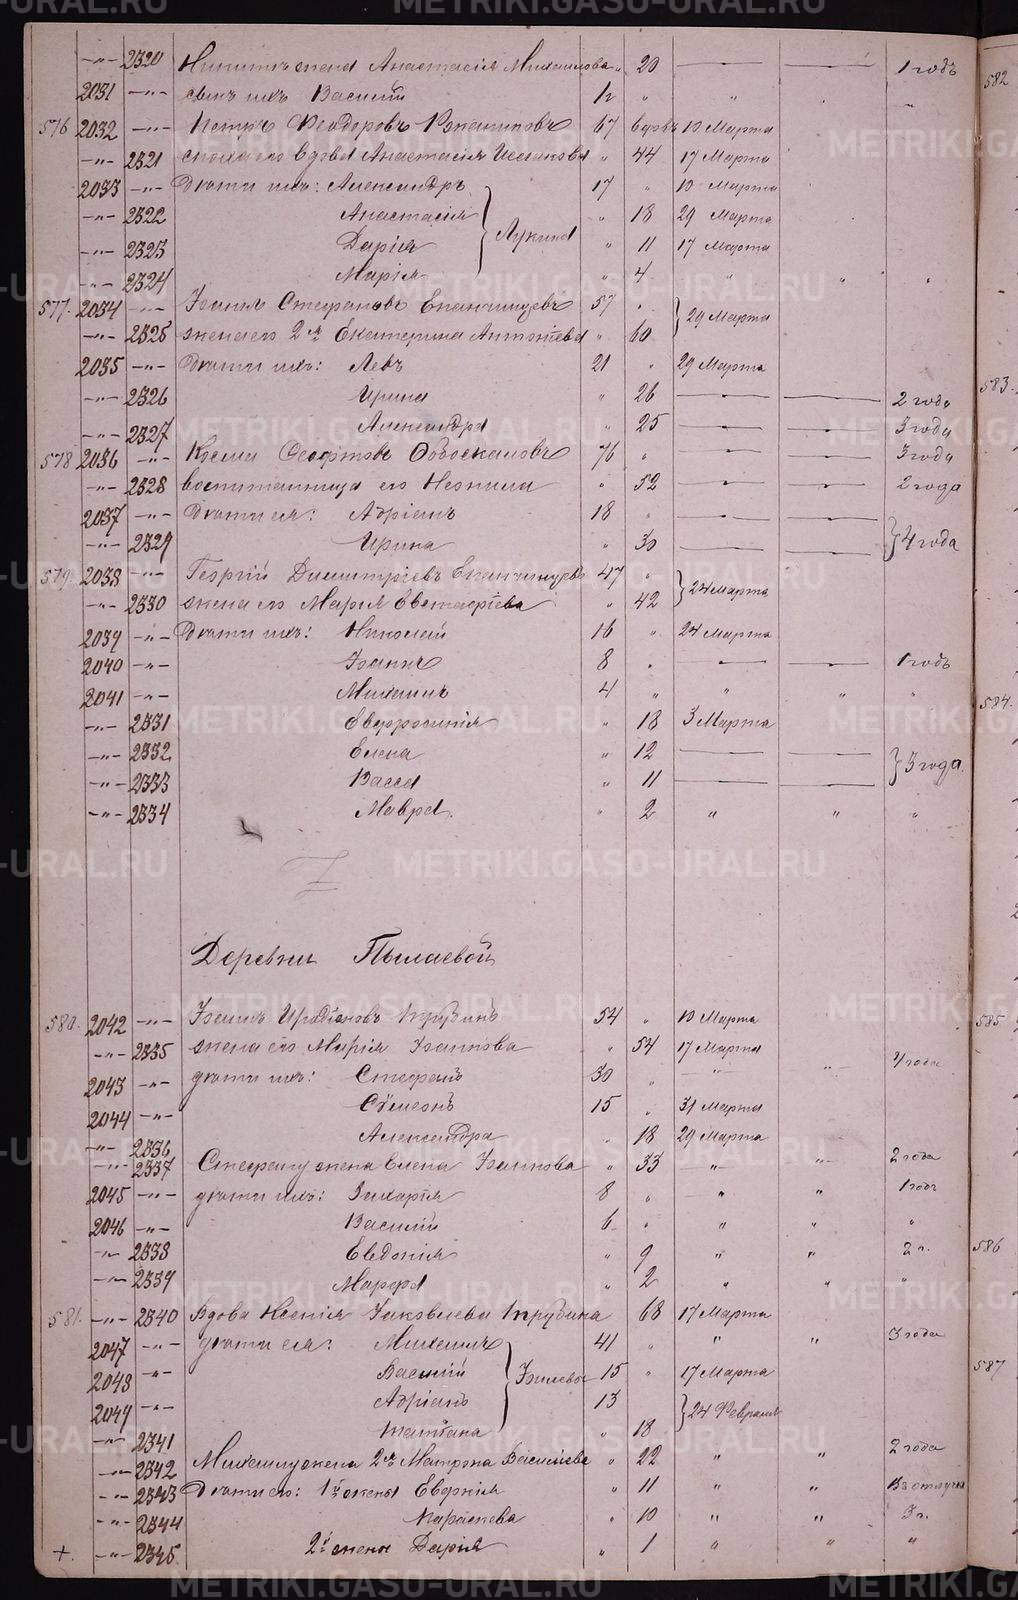 -„- 2320 Никиты жена Анастасия Михаилова „ 20 — — 1 годъ
2031 -„- сынъ ихъ Василий 1½ „ „ „ „
576 2032 -„- Петръ Феодоровъ 67 вдовъ 10 Марта
-„- 2321 сноха его вдова Анастасия „ 44 17 Марта
2033 -„- Дѣти ихъ: Александръ 17 „ 10 Марта
-„- 2322 Анастасія „ 18 29 Марта
-„- 2323 Дарія } Лукина „ 11 17 Марта
-„- 2324 Марія „ 4 „ „ „
577. 2034 -„- Іоаннъ Стефановъ Епанчинцевъ 57 „ } 29 Марта
-„- 2325 жена его 2я Екатерина Антоніева „ 60
2035 -„- Дѣти ихъ: Левъ 21 „ 29 Марта
-„- 2326 Ирина „ 26 — — 2 года
-„- 2327 Александра „ 25 — — 3 года
578 2036 -„- Косма 76 „ — — 3 года
-„- 2328 воспитанница его Неонила „ 52 — — 2 года
2037 -„- Дѣти ея: Адріанъ 18 „ — —
-„- 2329 Ирина „ 30 — — } 4 года
579. 2038 -„- Георгій Димитріевъ Епанчинцевъ 47 „ } 24 Марта
-„- 2330 жена его Марія Евстафіева „ 42
2039 -„- Дѣти ихъ: Николай 16 „ 24 Марта
2040 -„- Іоаннъ 8 „ — — 1 годъ
2041 -„- Михаилъ 4 „ „ „ „
-„- 2331 Евфросинія „ 18 3 Марта
-„- 2332 Елена „ 12 — —
-„- 2333 Васса „ 11 — — } 3 года
-„- 2334 Мавра. „ 2 „ „ „
Деревни Пылаевой
580. 2042 -„- Іоаннъ Трубинъ 54 „ 10 Марта
-„- 2335 жена его Марія Іоаннова „ 54 17 Марта
2043 -„- дѣти ихъ: Стефанъ 30 „ -„- „ 4 года
2044 -„- Сѵмеонъ 15 „ 31 Марта
-„- 2336 Александра „ 18 29 Марта
-„- 2337 Стефану жена Елена Іоаннова „ 33 -„- „ 2 года
2045 -„- дѣти ихъ: Захарія 8 „ „ „ 1 годъ
2046 -„- Василій 6 „ „ „ „
-„- 2338 Евдокія „ 9 „ „ 2 г.
-„- 2339 Марфа „ 2 „ „ „
581. -„- 2340 Вдова Ксенія Іаковлева Трубина „ 68 17 Марта
2047 -„- дѣти ея: Михаилъ 41 „ „ „ 3 года
2048 -„- Василій 15 „ 17 Марта
2049 -„- Адріанъ 13 } 24 Февраля
-„- 2341 Татіана „ 18
-„- 2342 Михаилу жена 2я Матрона Васильева „ 22 „ „ 2 года
-„- 2343 Дѣти его: 1й жены „ 11 „ „ В отлучкѣ
-„- 2344 Параскева „ 10 „ „ 3 г.
+. -„- 2345 2й жены Дарія „ 1 „ „ „
582
583.
584.
585
586
587
METRIKI.GASO-URAL.RU